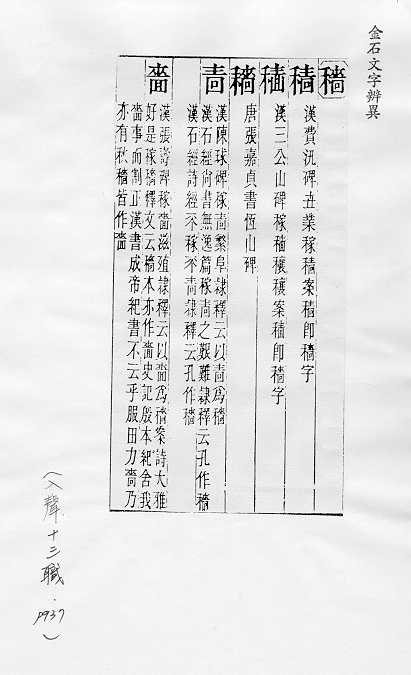 金石文字辨異
穡
漢費汎碑丑業稼案即穡字
漢三公山碑稼穰穰案即穡字
唐張嘉貞書恆山碑
漢陳球碑稼繁阜隸釋云以為穡
漢石經尚書無逸篇稼之艱難隸釋云孔作穡
漢石經詩經不稼不隸釋云孔作穡
嗇
漢張壽碑稼嗇滋殖隸釋云以嗇為穡案詩大雅
好是稼穡釋文云穡本亦作嗇史記殷本紀舍我
嗇事而割正漢書成帝紀書不云乎服田力嗇乃
亦有秋穡皆作嗇
（入聲十三職．p937）